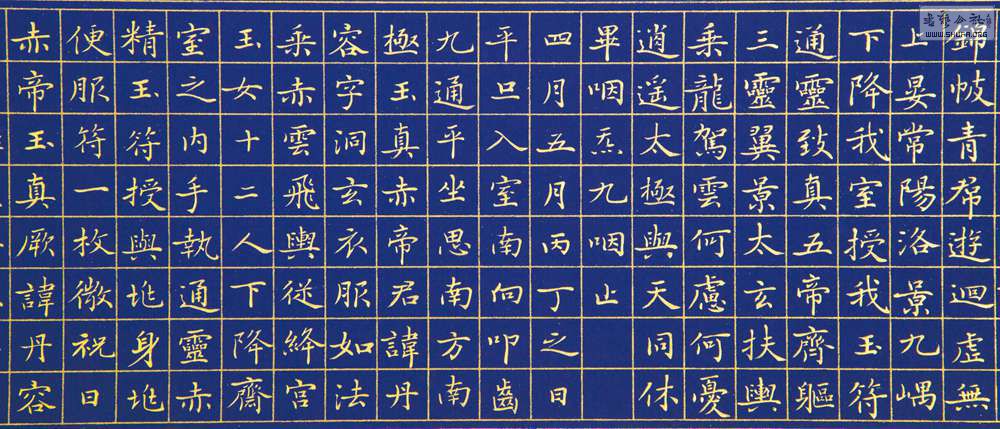 錦帔青帬遊迴虛無
上晏常陽洛景九嵎
下降我室授我玉符
通靈致真五帝齊軀
三靈翼景太玄扶輿
乘龍駕雲何慮何憂
逍遥太極與天同休
畢咽炁九咽止
四月五月丙丁之日
平旦入室南向叩齒
九通平坐思南方南
極玉真赤帝君諱丹
容字洞玄衣服如法
乘赤雲飛輿從絳宮
玉女十二人下降齋
室之内手執通靈赤
精玉符授與垗身垗
便服符一枚微祝曰
赤帝玉真厥諱丹容
WWW.SHUFA.ORG